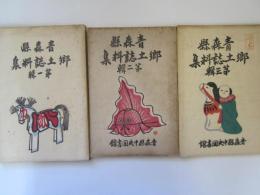 青森縣
郷土誌料集
第一輯
青森縣
郷土誌料集
第二輯
青森縣中央図書館
青森縣
郷土誌料集
第三輯
青森縣中央図書館